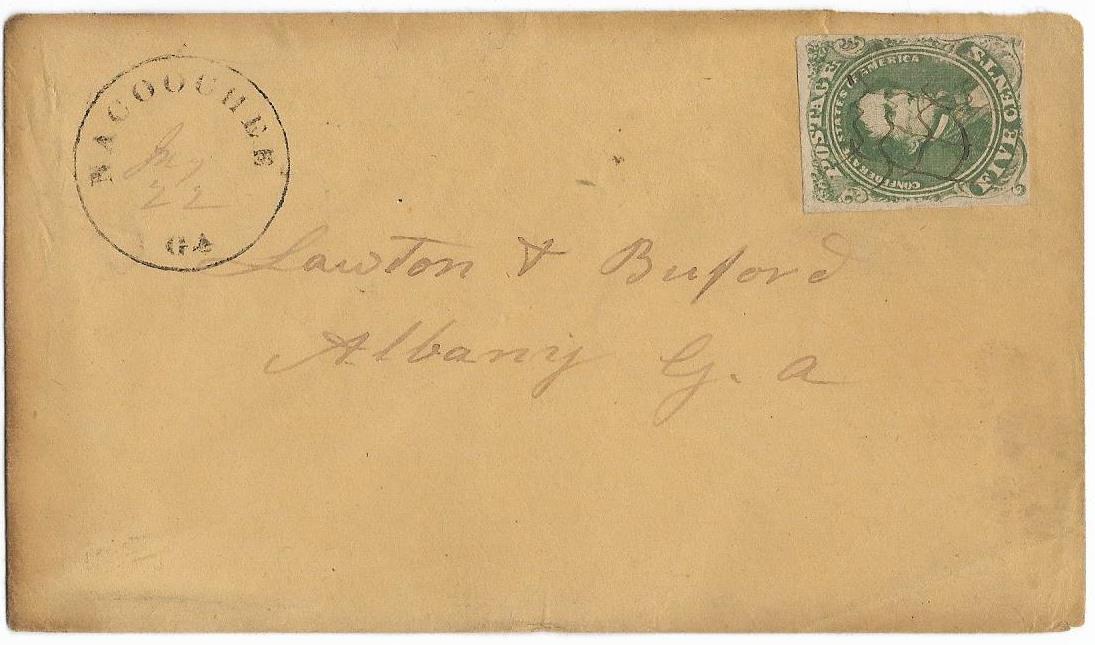 NACOOCHEE
22
GA
POSTAGE
CONFEDERATE STATES OF AMERICA
FIVE CENTS
Lawton & Buford
Albany G. a